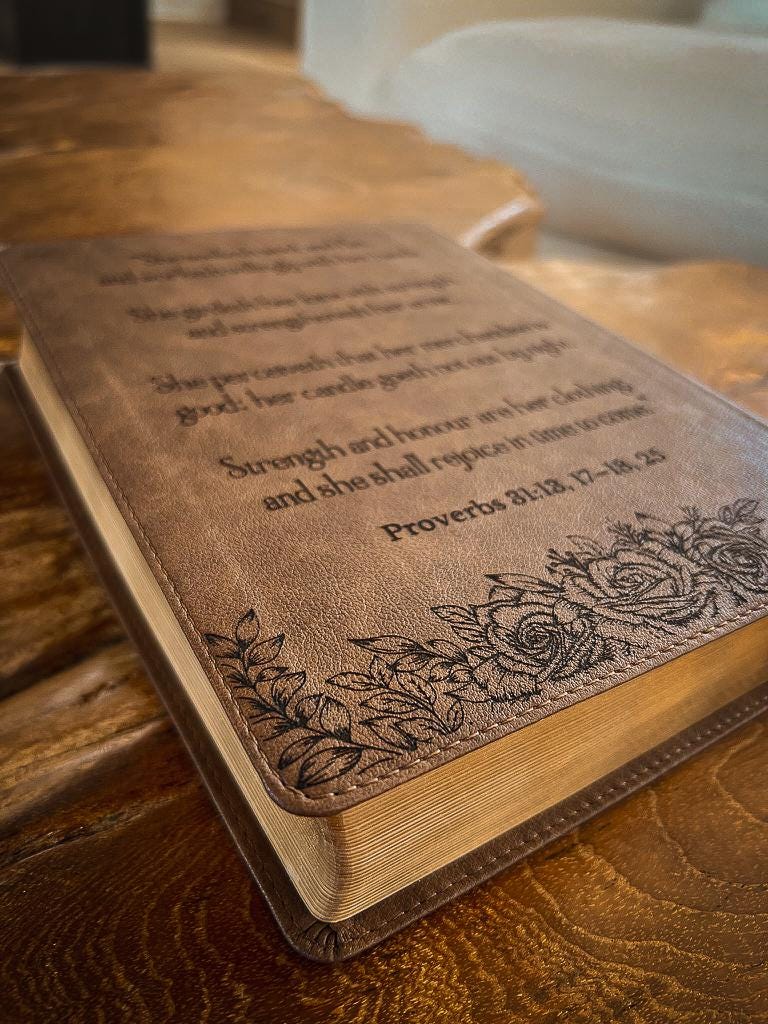 and worketh willingly with her
She girdeth her loins with strength,
and strengtheneth her arms.
She perceiveth that her merchandise is
good: her candle goeth not out by night.
Strength and honour are her clothing;
and she shall rejoice in time to come."
Proverbs 31:13, 17-18, 25